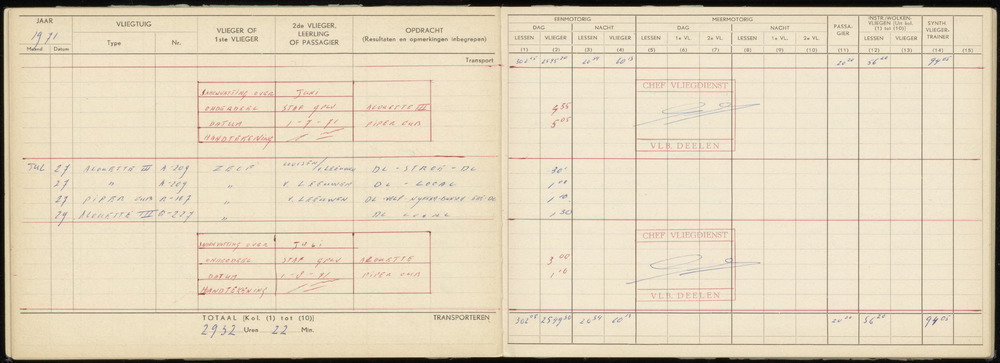 JAAR
1971
Maand Datum
VLIEGTUIG
Type Nr.
VLIEGER OF
1ste VLIEGER
2de VLIEGER,
LEERLING
OF PASSAGIER
OPDRACHT
(Resultaten en opmerkingen inbegrepen)
Transport
AANVULLING OVER JUNI
ONDERDEEL STAF GPLV ALOUETTE III
DATUM 1-7-71 PIPER CUB
HANDTEKENING
JUL 27 ALOUETTE III A-209 ZELF DL-STROE-DL
27 " A-209 " V. LEEUWEN DL - LOCAL
27 PIPER CUB R-167 " V. LEEUWEN
29 ALOUETTE III R-227 " DL LOCAL
AANVULLING OVER JULI
ONDERDEEL STAF GPLV ALOUETTE
DATUM 1-8-71 PIPER CUB
HANDTEKENING
TOTAAL [Kol. (1) tot (10)] TRANSPORTEREN
2932 Uren 22 Min.
EENMOTORIG
DAG NACHT
LESSEN VLIEGER LESSEN VLIEGER
(1) (2) (3) (4)
MEERMOTORIG
DAG NACHT
LESSEN 1e VL. 2e VL. LESSEN 1e VL. 2e VL.
(5) (6) (7) (8) (9) (10)
PASSA-
GIER
(11)
INSTR./WOLKEN-
VLIEGEN (Uit kol.
(1) tot (10))
LESSEN VLIEGER
(12) (13)
SYNTH.
VLIEGER-
TRAINER
(14) (15)
CHEF VLIEGDIENST
4 55
5 05
VLB. DEELEN
30'
1 00
1 10
1 30
CHEF VLIEGDIENST
3 00
1 10
VLB. DEELEN
302 05 2549 30 20 54 60 13 20 20 56 20 94 05